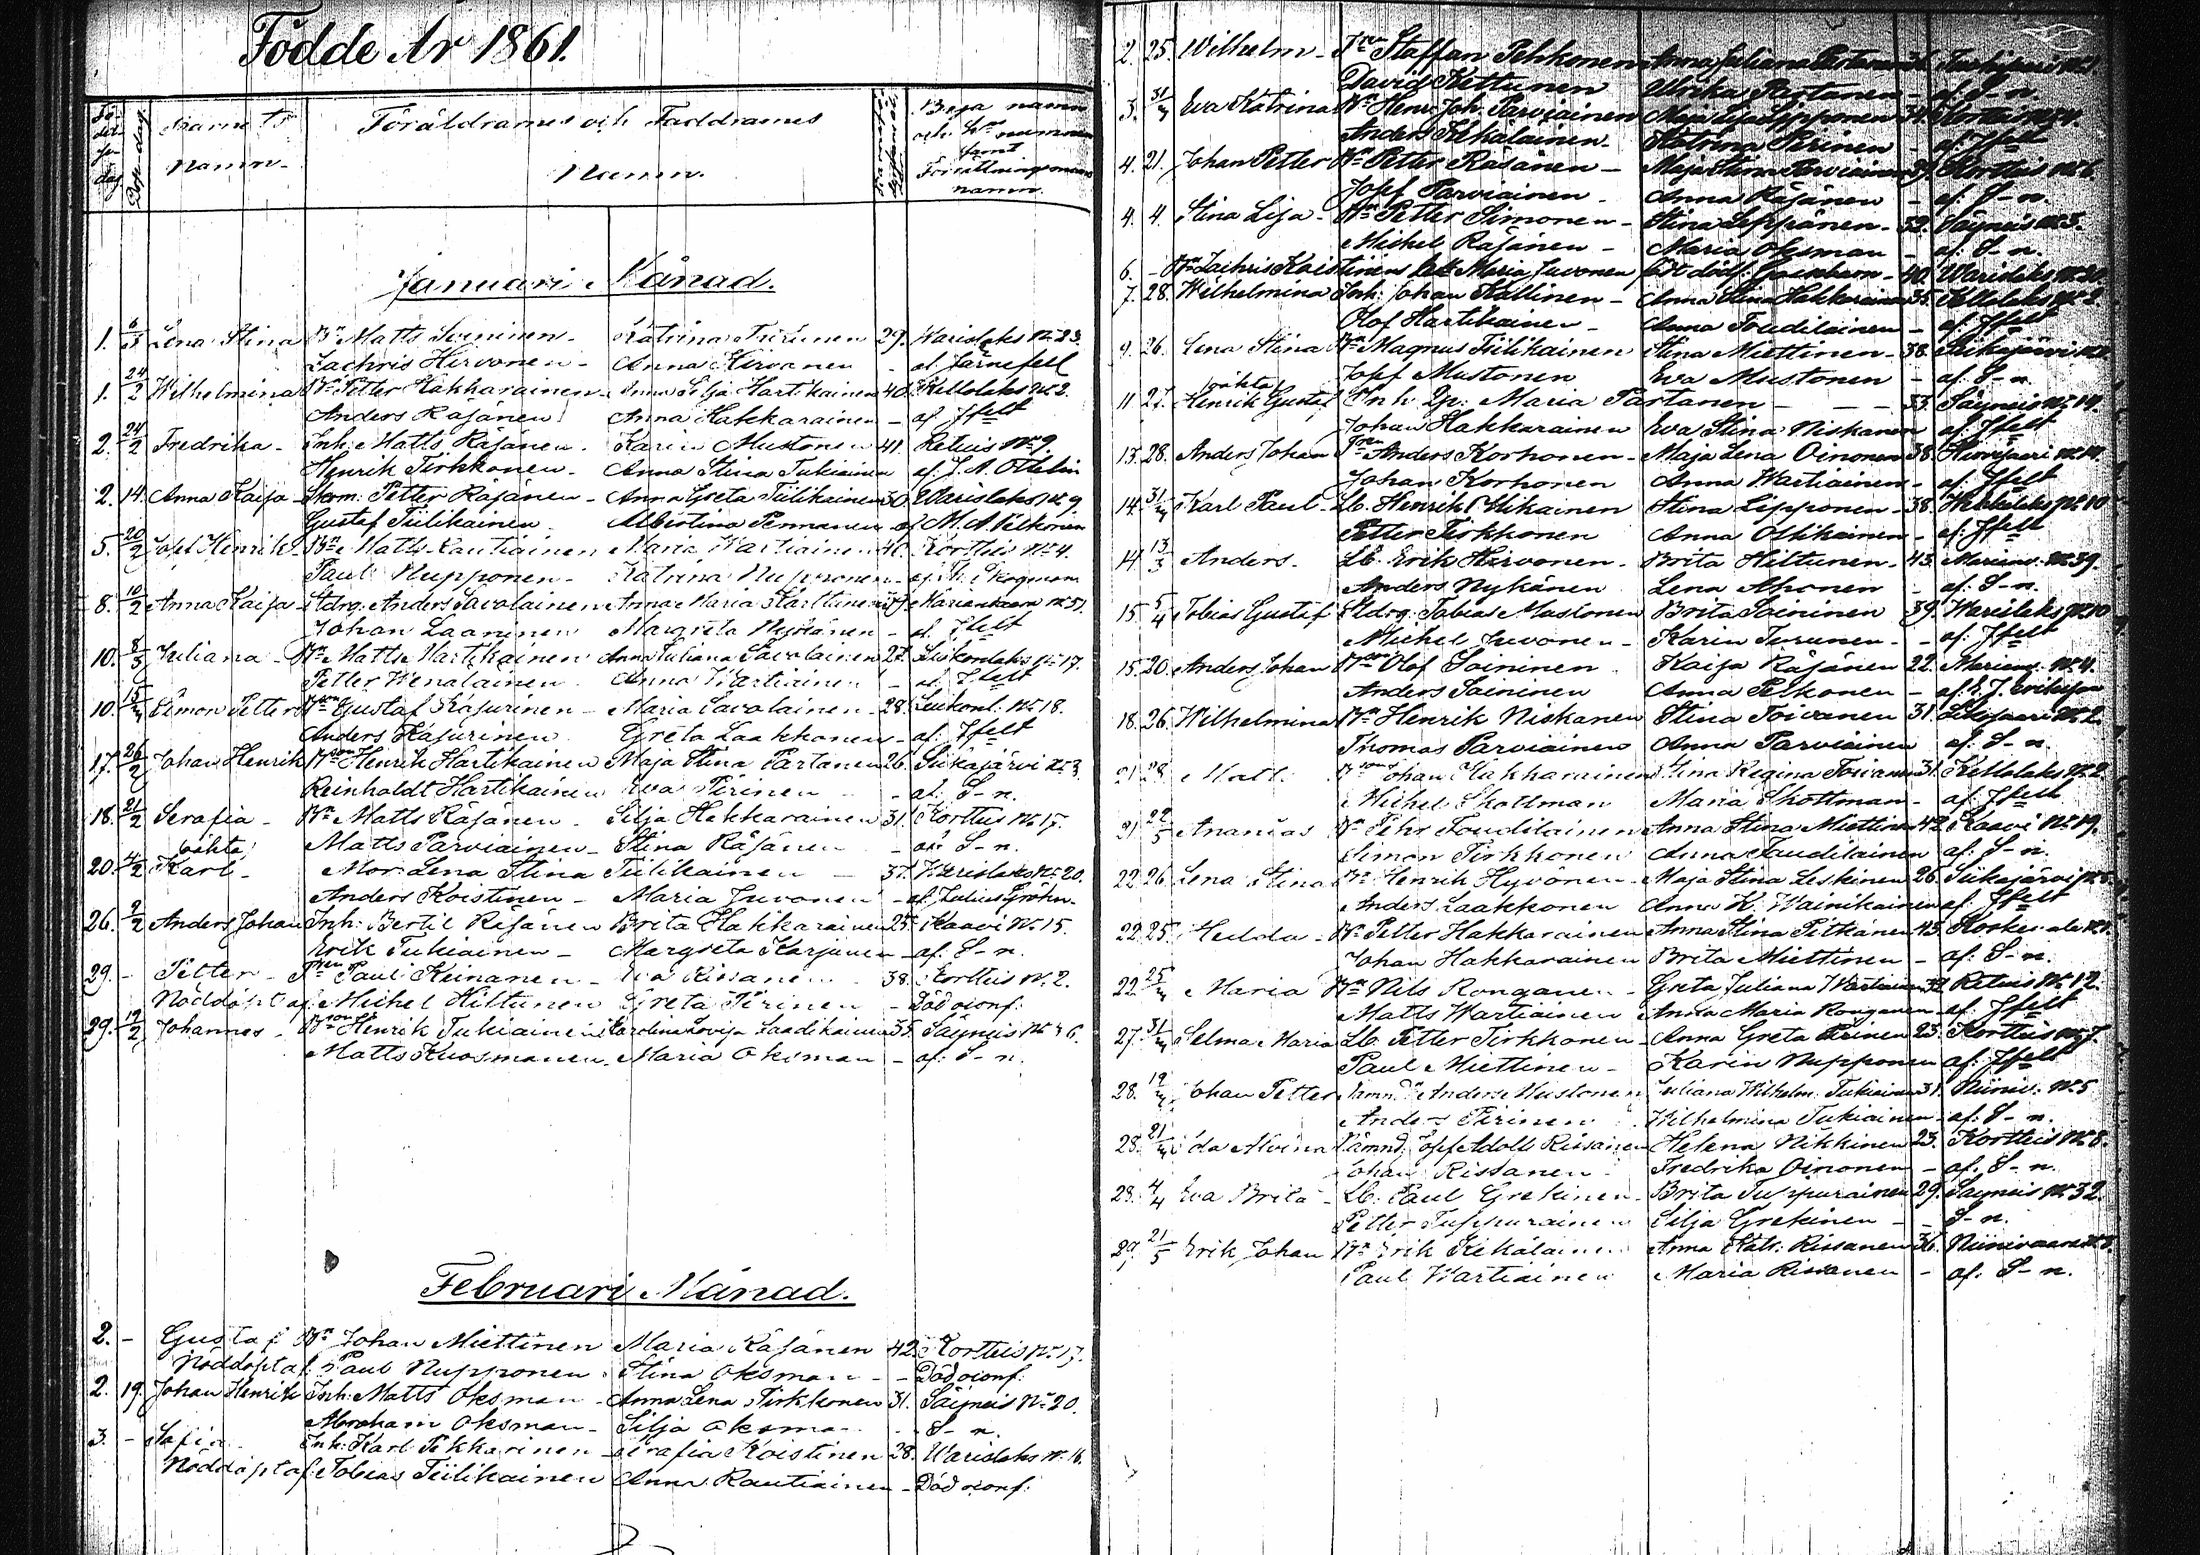 Födde År 1861.
Födelsedag
Dopedag
Barnets Namn.
Föräldrarnes och Faddrarnes Namn.
Byja namn och Hs nummer samt Förrättningsmans namn.
Januari Månad.
1. 6/3 Lena Stina Bn Matts Soininen - Katrina Turunen 29. Warislaks No 23.
Zachris Hirvonen - Anna Hirvonen - af Järnefelt
1. 24/2 Wilhelmina Bn Petter Hakkarainen - Anna Silja Hartikainen 40. Kettolaks No 2.
Anders Räsänen Anna Hakkarainen - af Jfelt
2. 24/2 Fredrika - Inh. Matts Räsänen - Karin Mustonen 41. Retuis No 9.
Henrik Tirkkonen - Anna Stina Tukiainen af J. A.
2. 14. Anna Kaisa - Petter Räsänen - Anna Greta Tiilikainen 30. Warislaks No 9
Gustaf Tiilikainen - Albertina Pennanen af M. A. Pelkonen
5. 20/2 Josef Henrik Bn Matts Rautiainen Maria Wartiainen 40. Korttis No 4.
Paul Nupponen - Katrina Nupponen - af
8. 10/2 Anna Kaisa - Anders Savolainen Anna Maria Karttunen 39. No 51.
Johan Laaninen Margreta Nykänen - af Jfelt
10. 8/3 Juliana - Bn Matts Hartikainen Anna Juliana Savolainen 27. No 17.
Petter Wenalainen Anna Wartiainen - af Jfelt
10. Simon Petter Gustaf Kasurinen - Maria Savolainen - 28. No 18.
Anders Kasurinen Greta Laakkonen - af Jfelt
17. 26/2 Johan Henrik Henrik Hartikainen Maja Stina Partanen 26. Siikajärvi No 3
Reinholdt Hartikainen Eva Pirinen - - af S-n.
18. 21/2 Serafia - Bn Matts Räsänen - Silja Hakkarainen 31. Korttis No 17.
Matts Parviainen - Stina Räsänen - af S-n.
oäkta
20. 4/2 Karl - Mor Lena Stina Tiilikainen - 37. Warislaks No 20.
Anders Koistinen - Maria Juvonen - af Julius Gröhn -
26. 9/2 Anders Johan Inh. Bertil Räsänen Brita Hakkarainen 25. Kaavi No 15.
Erik Tukiainen - Margreta Karjunen - af S-n.
29. - Petter - Paul Keinänen - Eva Rissanen 38. Korttis No 2.
Nöddöpt af Michel Hiltunen Greta Pirinen - Död oconf.
29. 17/2 Johannes - Henrik Tukiainen Carolina Lovisa Laadikainen 35. Säyneis No 36.
Matts Kuosmanen - Maria Oksman - af S-n.
Februari Månad.
2. - Gustaf Bn Johan Miettinen Maria Räsänen 42. Korttis No 17.
Nöddöpt af Paul Nupponen Stina Oksman - - Död oconf.
2. 19. Johan Henrik Inh. Matts Oksman - Anna Lena Tirkkonen 31. Säyneis No 20.
Abraham Oksman - Silja Oksman - S-n.
3. - Inh. Karl Pekkarinen - Serafia Koistinen 28. Warislaks No 16.
Nöddöpt af Tobias Tiilikainen Anna Rautiainen - Död oconf.
2. 25. Wilhelm - Staffan Pehkonen Anna Juliana Partanen
David Kettunen Ulrika Partanen - af S-n.
3. 31/3 Eva Katrina Bn Henr. Joh. Parviainen Maja Lisa Lipponen 34. Korttis No 4.
Anders Kekäläinen - Katrina Pirinen - af Jfelt
4. 21. Johan Petter Bn Petter Räsänen - Maja Stina Parviainen 39. Korttis No 6.
Josef Parviainen - Anna Räsänen - af S-n.
4. 4. Stina Lisa - Bn Petter Simonen - Stina Leppänen - 32. Säyneis No 3.
Michel Räsänen - Maria Oksman - af S-n.
6. - Bn Zachris Koistinens Maria Juvonen födt dödf. Gossebarn - 40. Warislaks No 20.
7. 28. Wilhelmina Inh. Johan Kallinen - Anna Stina Hakkarainen 35. Kettolaks No 2.
Olof Hartikainen - Anna Toudilainen - af Jfelt
9. 26. Lena Stina Bn Magnus Tiilikainen Stina Miettinen - 38. Siikajärvi
Josef Mustonen Eva Mustonen - af S-n.
oäkta
11 27. Henrik Gustaf Inh. Maria Partanen - - 33. Säyneis No 14.
Johan Hakkarainen Eva Stina Niskanen af Jfelt
13. 28. Anders Johan Anders Korhonen - Maja Lena Oinonen 38. Hirvisaari
Johan Korhonen Anna Wartiainen - af Jfelt
14. Karl Paul - Lb. Henrik Stina Lipponen - 38. No 10
Petter Tirkkonen Anna Ollikainen - af Jfelt
14. 13/3 Anders - Lb. Erik Hirvonen - Brita Hiltunen - 43. No 39.
Anders Nykänen Lena Ahonen - af S-n.
15. 5/4 Tobias Gustaf Tobias Mustonen Brita Soininen 39. Warislaks No 10
Michel Juvonen - Karin Turunen - - af Jfelt
15. 20. Anders Johan Olof Soininen Kaisa Räsänen 22. No 4.
Anders Soininen Anna Pelkonen - af
18. 26. Wilhelmina Bn Henrik Niskanen Stina Toivanen 31. No 2.
Thomas Parviainen Anna Parviainen af S-n.
21. 28. Matts Johan Hakkarainen Stina Regina Toivanen 31. Kettolaks No 2.
Michel Skottman Maria Skottman - af Jfelt
21. 22/5 Ananias Bn Pehr Toudilainen Anna Stina Miettinen 42. Kaavi No 19.
Simon Tirkkonen Anna Toudilainen af S-n.
22. 26. Lena Stina Bn Henrik Hyvönen - Maja Stina Leskinen 26. Siikajärvi
Anders Laakkonen Anna K. Wainikainen af Jfelt
22. 25. Hedda - Bn Petter Hakkarainen Anna Stina Pitkänen 45.
Johan Hakkarainen Brita Miettinen - af S-n.
22. Maria Bn Nils Ronganen - Greta Juliana Wartiainen 32. Retuis No 12.
Matts Wartiainen Anna Maria Ronganen - af Jfelt
27. Selma Maria Lb. Petter Tirkkonen - Anna Greta Pirinen 23. Korttis No 7.
Paul Miettinen - Karin Nupponen af Jfelt
28. Johan Petter Anders Mustonen Juliana Wilhelm. Tukiainen 31. No 5
Anders Pirinen Wilhelmina Tukiainen - af S-n.
28. Ida Alvina Nämnd. Josef Adolf Rissanen Helena Nikkinen 23. Korttis No 8.
Johan Rissanen - Fredrika Oinonen - af S-n.
28. 4/4 Eva Brita - Lb. Paul Grekinen - Brita Tuppurainen 29. Säyneis No 32.
Petter Tuppurainen Silja Grekinen - - S-n.
29. 21/5 Erik Johan Bn Erik Kekäläinen Anna Katr. Rissanen 36. Niinivaara
Paul Wartiainen Maria Rissanen - af S-n.